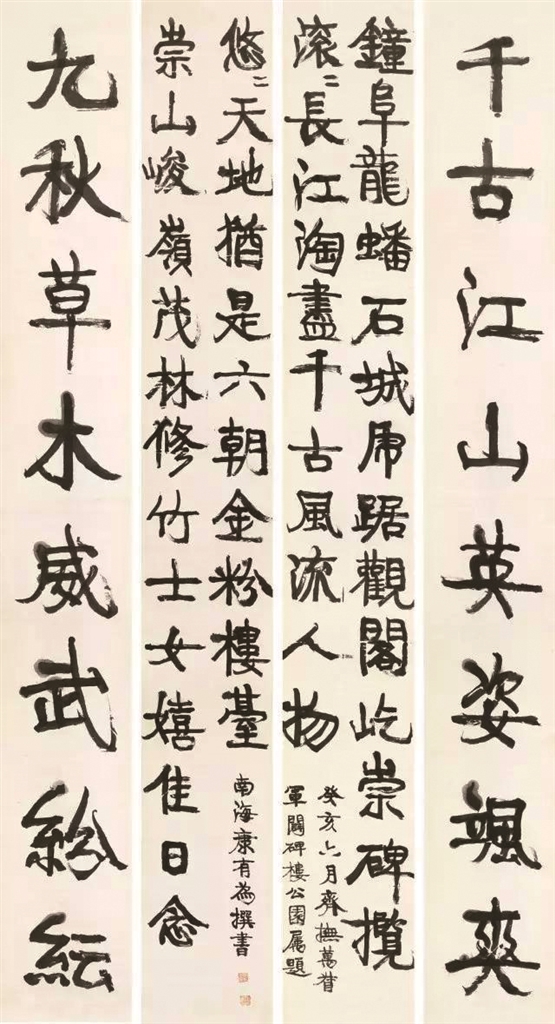 千古江山英姿颯爽
鐘阜龍蟠石城虎踞觀閣屹崇碑攬
滾〻長江淘盡千古風流人物
癸亥六月齊撫萬督
軍闢碑樓公園屬題
九秋草木威武紛紜
崇山峻嶺茂林修竹士女嬉佳日念
悠〻天地猶是六朝金粉樓臺
南海康有為撰書